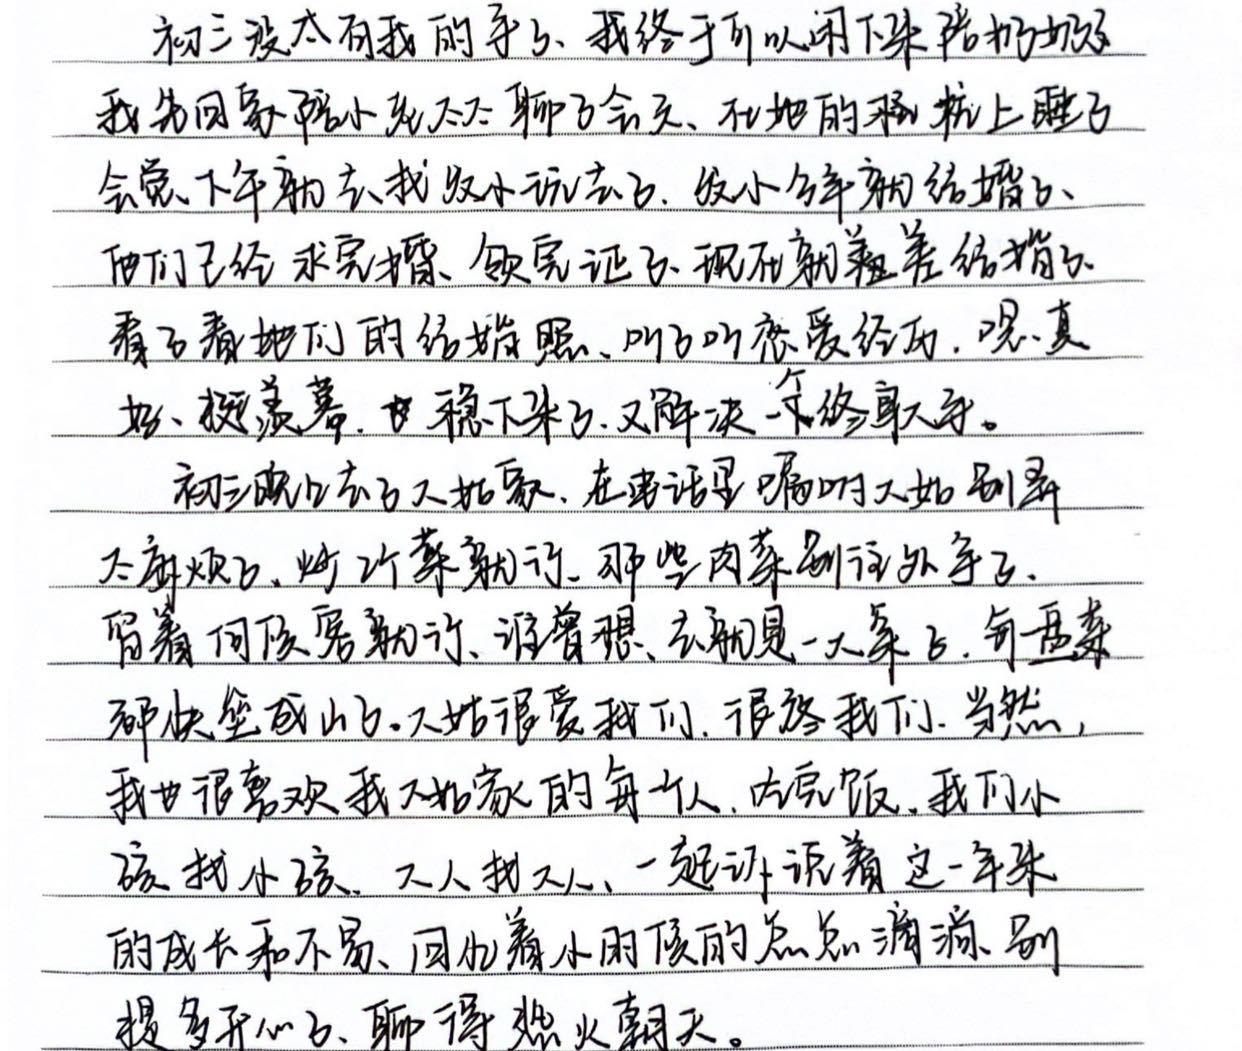 初三没太有我的事了、我终于可以闲下来陪奶奶了
我先回家陪小老太太聊了会天、在她的摇椅上睡了
会觉、下午就去找发小玩去了.发小今年就结婚了、
他们已经求完婚、领完证了、现在就差结婚了、
看了看她们的结婚照、听了听恋爱经历.嗯、真
好、挺羡慕.也稳下来了.又解决一个终身大事。
初三晚上去了大姑家.在电话里嘱咐大姑别弄
太麻烦了、炒2个菜就行、那些肉菜别往外弄了、
留着伺候客就行、谁曾想、去就是一大桌了.每盘菜
都快垒成山了。大姑很爱我们.很疼我们.当然,
我也很喜欢我大姑家的每个人.吃完饭.我们小
孩找小孩、大人找大人、一起诉说着这一年来
的成长和不易、回忆着小时候的点点滴滴、别
提多开心了、聊得热火朝天。